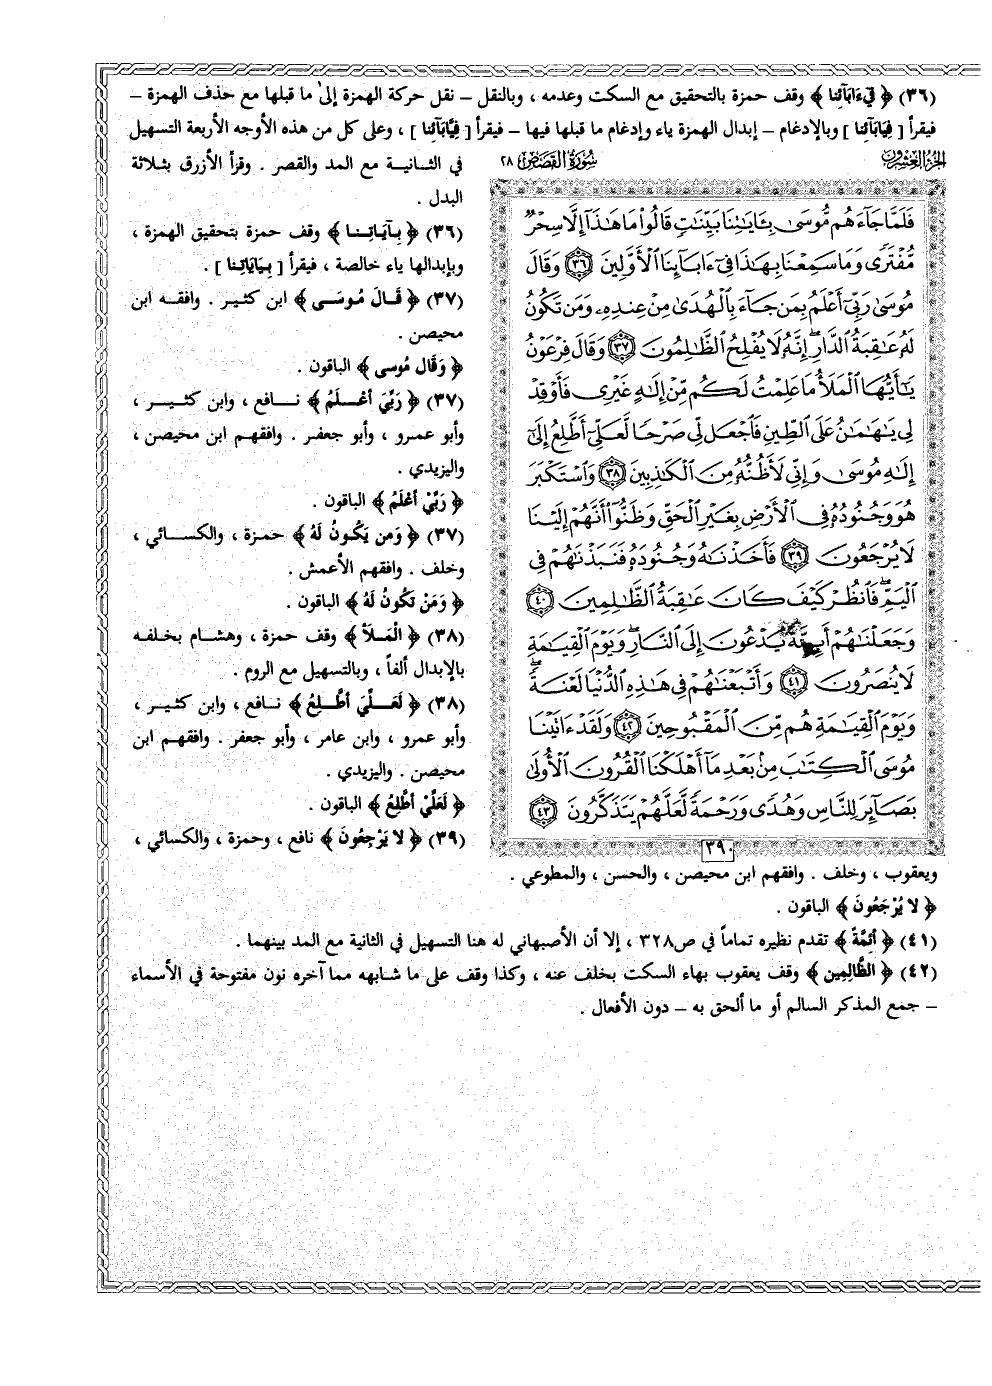 (٣٦) ﴿ فِيءَابَآئِنَا ﴾ وقف حمزة بالتحقيق مع السكت وعدمه ، وبالنقل – نقل حركة الهمزة إلىٰ ما قبلها مع حذف الهمزة –
فيقرأ [ فِيَابَآئِنَا ] وبالإدغام – إبدال الهمزة ياء وإدغام ما قبلها فيها – فيقرأ [ فِيَّابَآئِنَا ] ، وعلى كل من هذه الأوجه الأربعة التسهيل
في الثـانـية مع المد والقصر . وقرأ الأزرق بثـلاثـة
البدل .
(٣٦) ﴿ بِـآيَـاتِـنـا ﴾ وقف حمزة بتحقيق الهمزة ،
وبإبدالها ياء خالصة ، فيقرأ [ بِيَايَاتِنا ] .
(٣٧) ﴿ قَـالَ مُوسَـى ﴾ ابن كثـير . وافقـه ابن
محيصن .
﴿ وَقَال مُوسى ﴾ الباقون .
(٣٧) ﴿ رَبِّيَ أعْـلَمُ ﴾ نـافع ، وابن كثـير ،
وأبو عمرو ، وأبو جعفر . وافقهم ابن محيصن ،
واليزيدي .
﴿ رَبِّيْ أعْلَمُ ﴾ الباقون .
(٣٧) ﴿ وَمن يَكُـونُ لَهُ ﴾ حمـزة ، والكسـائي ،
وخلف . وافقهم الأعمش .
﴿ وَمَنْ تَكُونُ لَهُ ﴾ الباقون .
(٣٨) ﴿ الْمَـلأُ ﴾ وقف حمزة ، وهشـام بخـلفـه
بالإبدال ألفاً ، وبالتسهيل مع الروم .
(٣٨) ﴿ لَعَـلِّيَ أطَّـلِعُ ﴾ نـافع ، وابن كثـير ،
وأبو عمرو ، وابن عامر ، وأبو جعفر . وافقهـم ابن
محيصن . واليزيدي .
﴿ لَعَلِّيْ أطَّلِعُ ﴾ الباقون .
(٣٩) ﴿ لا يَرْجِعُونَ ﴾ نافع ، وحمزة ، والكسائي ،
الجزء العشرون
سُورَةُ القَصَصِ ٢٨
فَلَمَّا جَآءَهُم مُّوسَىٰ بِـَٔايَٰتِنَا بَيِّنَٰتٖ قَالُواْ مَا هَٰذَآ إِلَّا سِحۡرٞ
مُّفۡتَرٗى وَمَا سَمِعۡنَا بِهَٰذَا فِيٓ ءَابَآئِنَا ٱلۡأَوَّلِينَ ٣٦ وَقَالَ
مُوسَىٰ رَبِّيٓ أَعۡلَمُ بِمَن جَآءَ بِٱلۡهُدَىٰ مِنۡ عِندِهِۦ وَمَن تَكُونُ
لَهُۥ عَٰقِبَةُ ٱلدَّارِۚ إِنَّهُۥ لَا يُفۡلِحُ ٱلظَّٰلِمُونَ ٣٧ وَقَالَ فِرۡعَوۡنُ
يَٰٓأَيُّهَا ٱلۡمَلَأُ مَا عَلِمۡتُ لَكُم مِّنۡ إِلَٰهٍ غَيۡرِي فَأَوۡقِدۡ
لِي يَٰهَٰمَٰنُ عَلَى ٱلطِّينِ فَٱجۡعَل لِّي صَرۡحٗا لَّعَلِّيٓ أَطَّلِعُ إِلَىٰٓ
إِلَٰهِ مُوسَىٰ وَإِنِّي لَأَظُنُّهُۥ مِنَ ٱلۡكَٰذِبِينَ ٣٨ وَٱسۡتَكۡبَرَ
هُوَ وَجُنُودُهُۥ فِي ٱلۡأَرۡضِ بِغَيۡرِ ٱلۡحَقِّ وَظَنُّوٓاْ أَنَّهُمۡ إِلَيۡنَا
لَا يُرۡجَعُونَ ٣٩ فَأَخَذۡنَٰهُ وَجُنُودَهُۥ فَنَبَذۡنَٰهُمۡ فِي
ٱلۡيَمِّۖ فَٱنظُرۡ كَيۡفَ كَانَ عَٰقِبَةُ ٱلظَّٰلِمِينَ ٤٠
وَجَعَلۡنَٰهُمۡ أَئِمَّةٗ يَدۡعُونَ إِلَى ٱلنَّارِۖ وَيَوۡمَ ٱلۡقِيَٰمَةِ
لَا يُنصَرُونَ ٤١ وَأَتۡبَعۡنَٰهُمۡ فِي هَٰذِهِ ٱلدُّنۡيَا لَعۡنَةٗۖ
وَيَوۡمَ ٱلۡقِيَٰمَةِ هُم مِّنَ ٱلۡمَقۡبُوحِينَ ٤٢ وَلَقَدۡ ءَاتَيۡنَا
مُوسَى ٱلۡكِتَٰبَ مِنۢ بَعۡدِ مَآ أَهۡلَكۡنَا ٱلۡقُرُونَ ٱلۡأُولَىٰ
بَصَآئِرَ لِلنَّاسِ وَهُدٗى وَرَحۡمَةٗ لَّعَلَّهُمۡ يَتَذَكَّرُونَ ٤٣
٣٩٠
ويعقوب ، وخلف . وافقهم ابن محيصن ، والحسن ، والمطوعي .
﴿ لا يُرْجَعُونَ ﴾ الباقون .
(٤١) ﴿ أئِمَّةً ﴾ تقدم نظيره تماماً في ص٣٢٨ ، إلا أن الأصبهاني له هنا التسهيل في الثانية مع المد بينهما .
(٤٢) ﴿ الظَّالِمِين ﴾ وقف يعقوب بهاء السكت بخلف عنه ، وكذا وقف على ما شابهه مما آخره نون مفتوحة في الأسماء
– جمع المذكر السالم أو ما ألحق به – دون الأفعال .